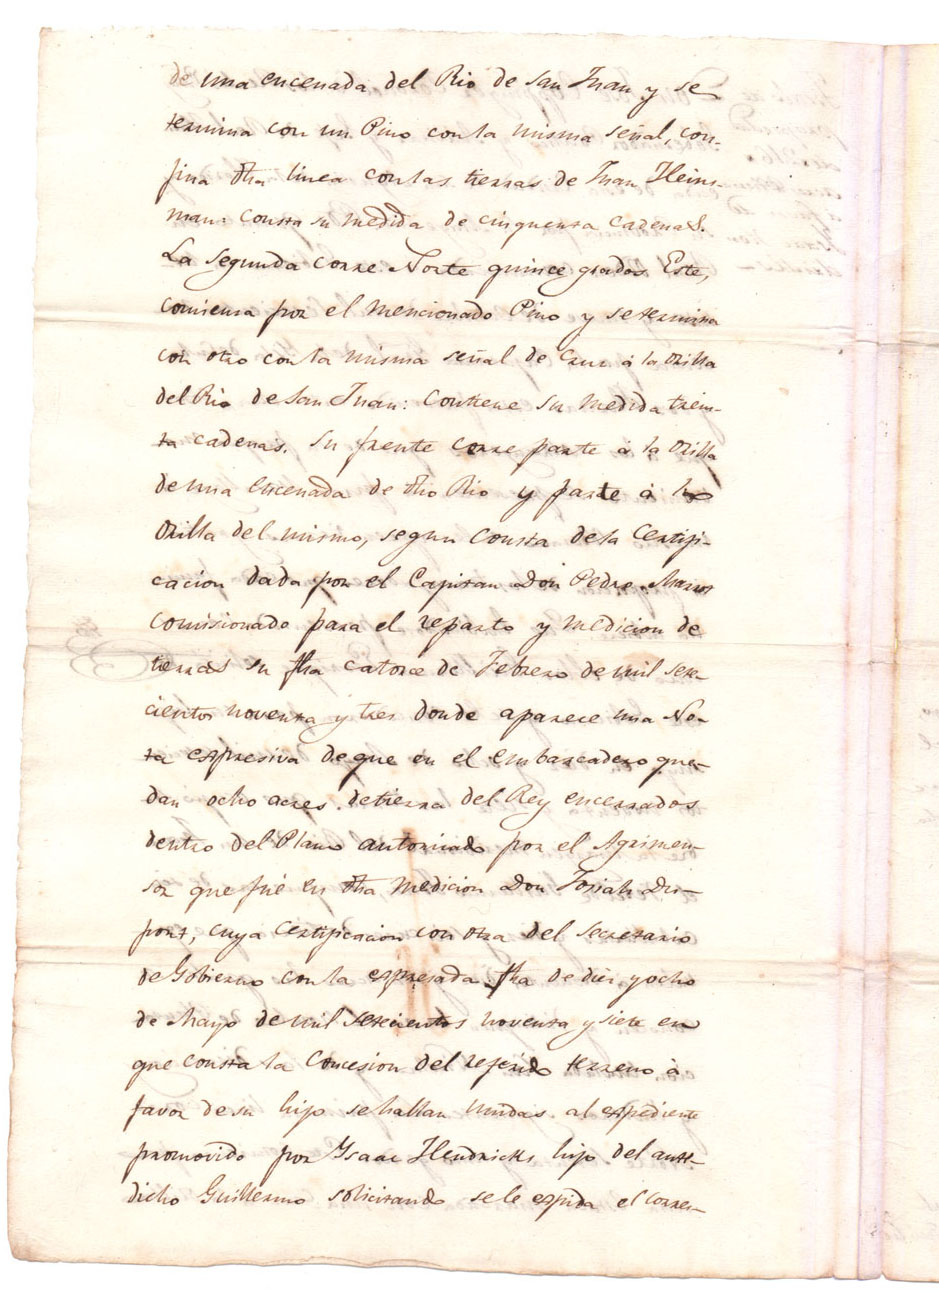 de una encenada del Rio de San Juan y se
termina con un Pino con la misma señal, con-
fina dha linea con las tierras de Juan Heins-
man: consta su medida de cinquenta cadenas.
La segunda corre Norte quince grados Este,
comienza por el mencionado Pino y se termina
con otro con la misma señal de Cruz à la Orilla
del Rio de San Juan: contiene su medida trein-
ta cadenas. Su frente corre parte à la Orilla
de una encenada de dho Rio y parte à la
Orilla del mismo, segun consta de la Certifi-
cacion dada por el Capitan Don Pedro Marrot
comisionado para el reparto y medicion de
tierras su fha catorce de Febrero de mil sete-
cientos noventa y tres donde aparece una No-
ta expresiva de que en el embarcadero que-
dan ocho acres de tierra del Rey encerrados
dentro del Plano autorizado por el Agrimen-
sor que fué en dha medicion Don Josiah Du-
pont, cuya Certificacion con otra del Secretario
de Gobierno con la expresada fha de diez y ocho
de Mayo de mil setecientos noventa y siete en
que consta la Concesion del referido terreno à
favor de su hijo se hallan unidas al expediente
promovido por Ysaac Hendricks hijo del ante-
dicho Guillermo solicitando se le expida el corres-